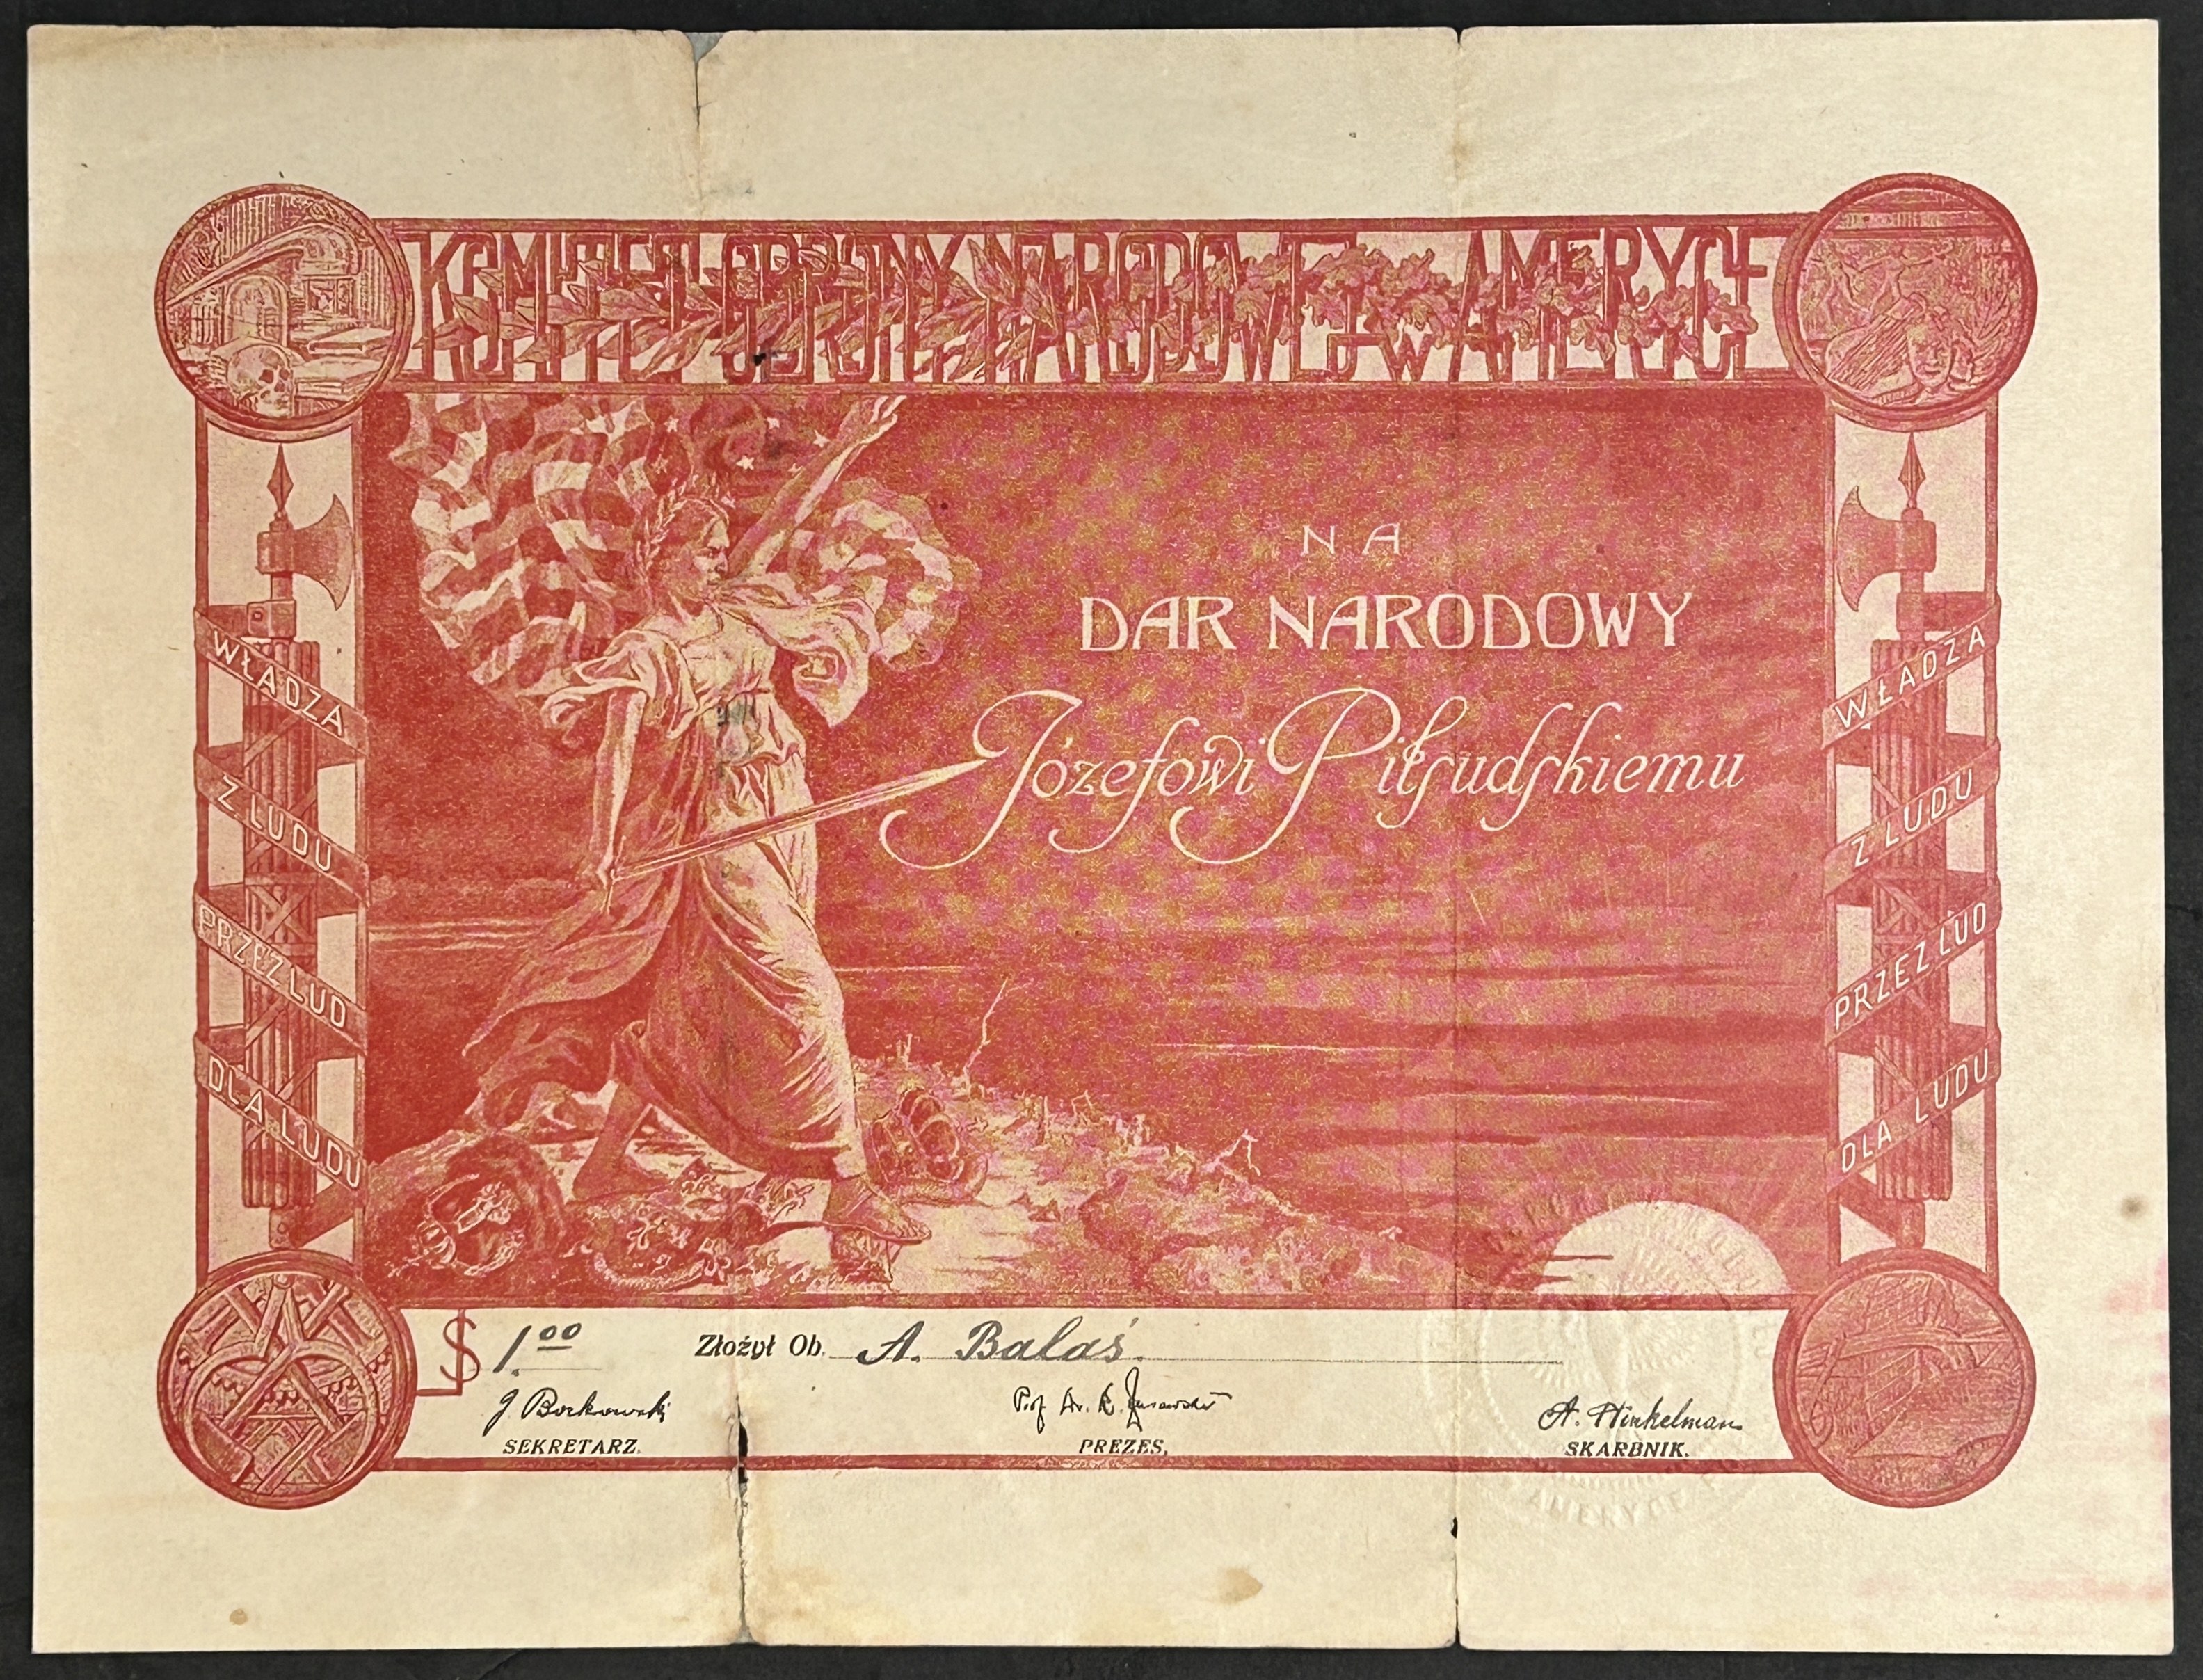 KOMITET OBRONY NARODOWEJ w AMERYCE
NA
DAR NARODOWY
Józefowi Piłsudskiemu
WŁADZA
Z LUDU
PRZEZ LUD
DLA LUDU
WŁADZA
Z LUDU
PRZEZ LUD
DLA LUDU
$ 1.00 Złożył Ob. A. Balaś
J. Borkowski Prof. Dr. R. A. Hinkelman
SEKRETARZ. PREZES, SKARBNIK.
AMERYCE